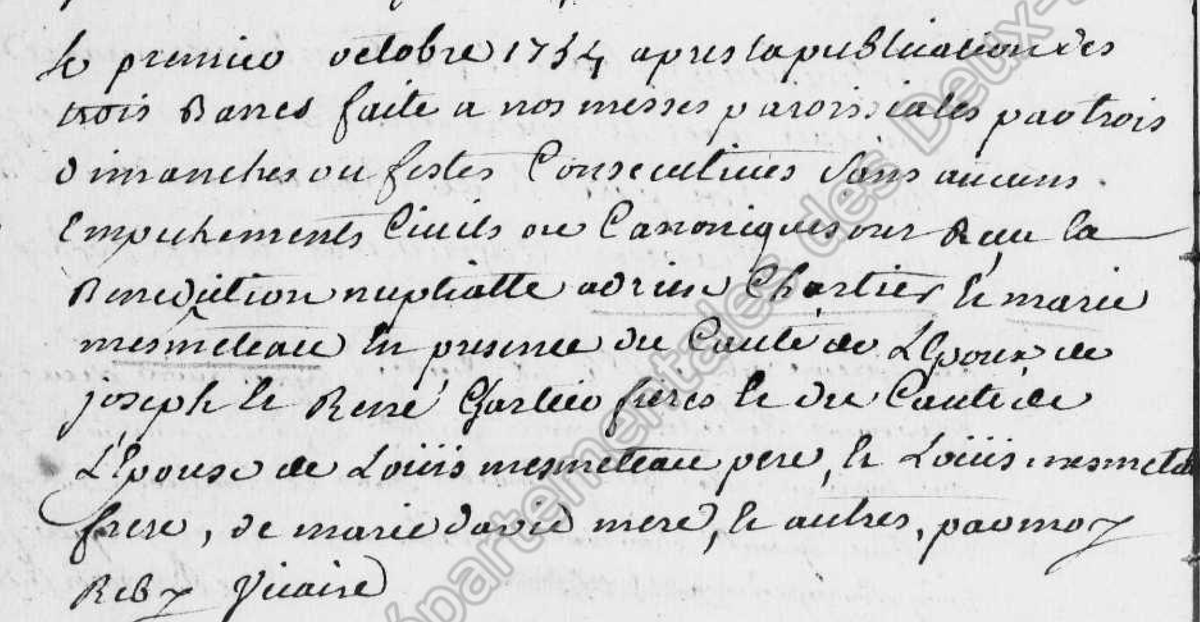 le premier octobre 1754 apres la publication des
trois Bancs faite a nos messes paroissiales par trois
dimanches ou festes Consecutives sans aucuns
Empechements Civils ou Canoniques ont Reçu la
Benediction nuptialle adrien Chartier et marie
mesmeteau En presence du Couté de L'Epoux de
joseph et René Chartier freres et du Couté de
L'Epouse de Louis mesmeteau pere, et Louis mesmetau
frere, de marie david mere, et autres, par moy
Reby Vicaire
épartementales des Deux-